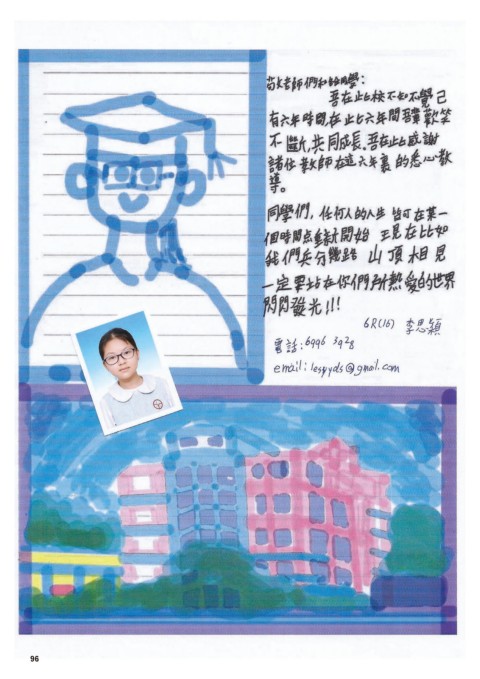 致老師們和各同學:
吾在此校不知不覺已
有六年時間,在此六年間吾輩歡笑
不斷,共同成長.吾在此感謝
諸位教師在這六年裏的悉心教
導。
同學們, 任何人的人生 皆可在某一
個時間点重新開始 現在比如
我們兵分幾路 山頂相見
一定要站在你們所熱愛的世界
閃閃發光!!!
6R(16) 李思穎
電話: 6996 3928
email: lespyds@gmail.com
96